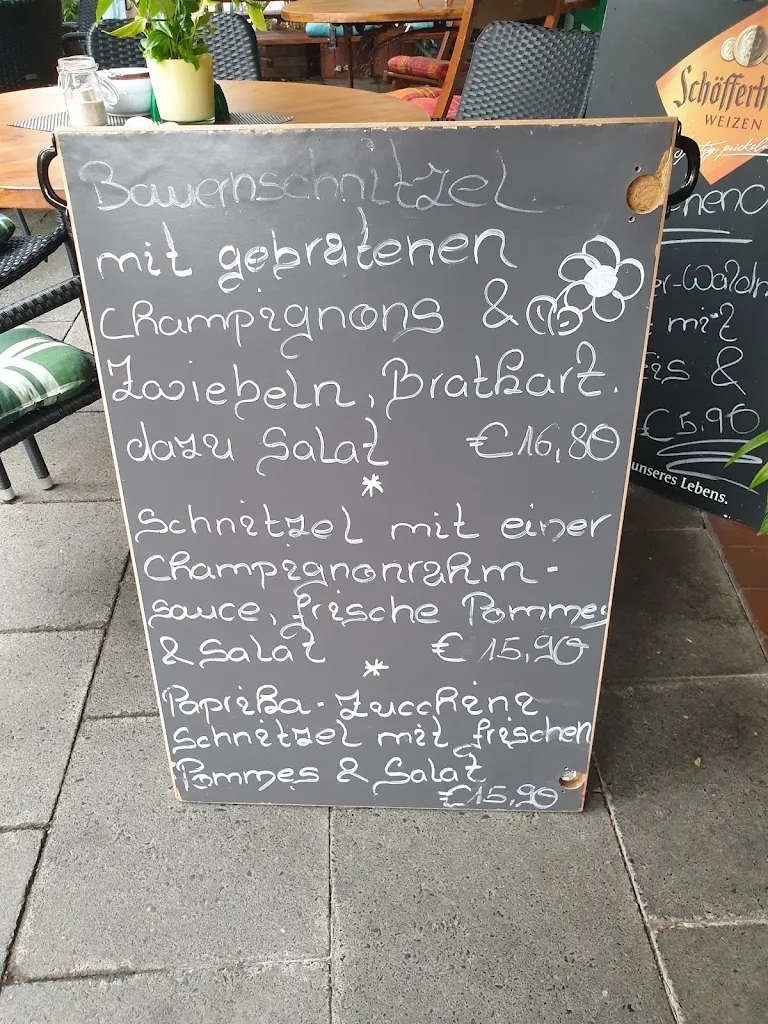 Bauernschnitzel
mit gebratenen
Champignons &
Zwiebeln, Bratkart.
dazu Salat €16,80
*
Schnitzel mit einer
Champignonrahm-
sauce, frische Pommes
& Salat € 15,90
*
Paprika-Zucchini
Schnitzel mit frischen
Pommes & Salat
€15,90
WEIZEN
mit
&
€5,90
unseres Lebens.